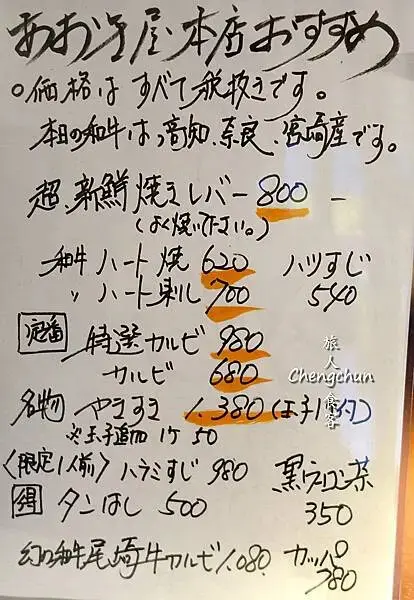 あお浄屋本店おすすめ
○価格はすべて税抜きです。
本日の和牛は、高知、奈良、宮崎産です。
超、新鮮焼きレバー 800 ー
(よく焼いて下さい。)
和牛 ハート焼 620 ハツすじ
〃 ハート刺し 700 540
定番 特選カルビ 980
カルビ 680
名物 やきすき 1,380 (玉子1ケ付)
※玉子追加 1ケ 50
〈限定1人前〉ハラミすじ 980 黒ウーロン茶
得 タンはし 500 350
幻の和牛尾崎牛カルビ 1,080. カッパ
780
旅人食客
Chengchun